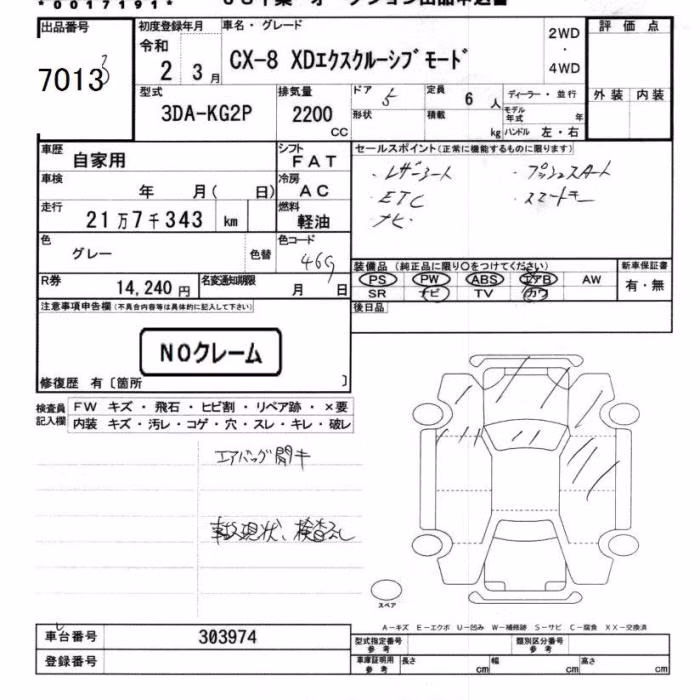 *0017191*
出品番号 初度登録年月 車名・グレード 2WD・4WD 評価点
70133 令和 2 3月 CX-8 XDエクスクルーシブモード
型式 排気量 ドア 5 定員 6 人 ディーラー・並行 外装 内装
3DA-KG2P 2200 CC 形状 積載 kg モデル年式 年 ハンドル 左・右
車歴 自家用 シフト FAT セールスポイント(正常に機能するものに限ります)
車検 年 月( 日) 冷房 AC ・レザーシート ・プッシュスタート
走行 21万7千343 km 燃料 軽油 ・ETC ・スマートキー
・ナビ
色 グレー 色替 色コード 46G
装備品(純正品に限り○をつけてください) 新車保証書
R券 14,240円 名変通知期限 月 日 PS PW ABS エアB AW 有・無
SR ナビ TV カワ
注意事項申告欄(不具合内容等は具体的に記入して下さい) 後日品
NOクレーム
修復歴 有〔箇所 〕
検査員記入欄 FW キズ・飛石・ヒビ割・リペア跡・×要
内装 キズ・汚レ・コゲ・穴・スレ・キレ・破レ
エアバッグ開キ
事故現状、検査なし
スペア
A-キズ E-エクボ U-凹み W-補修跡 S-サビ C-腐食 XX-交換済
車台番号 303974 型式指定番号 参考 類別区分番号 参考
登録番号 車庫証明用 参考 長さ cm 幅 cm 高さ cm